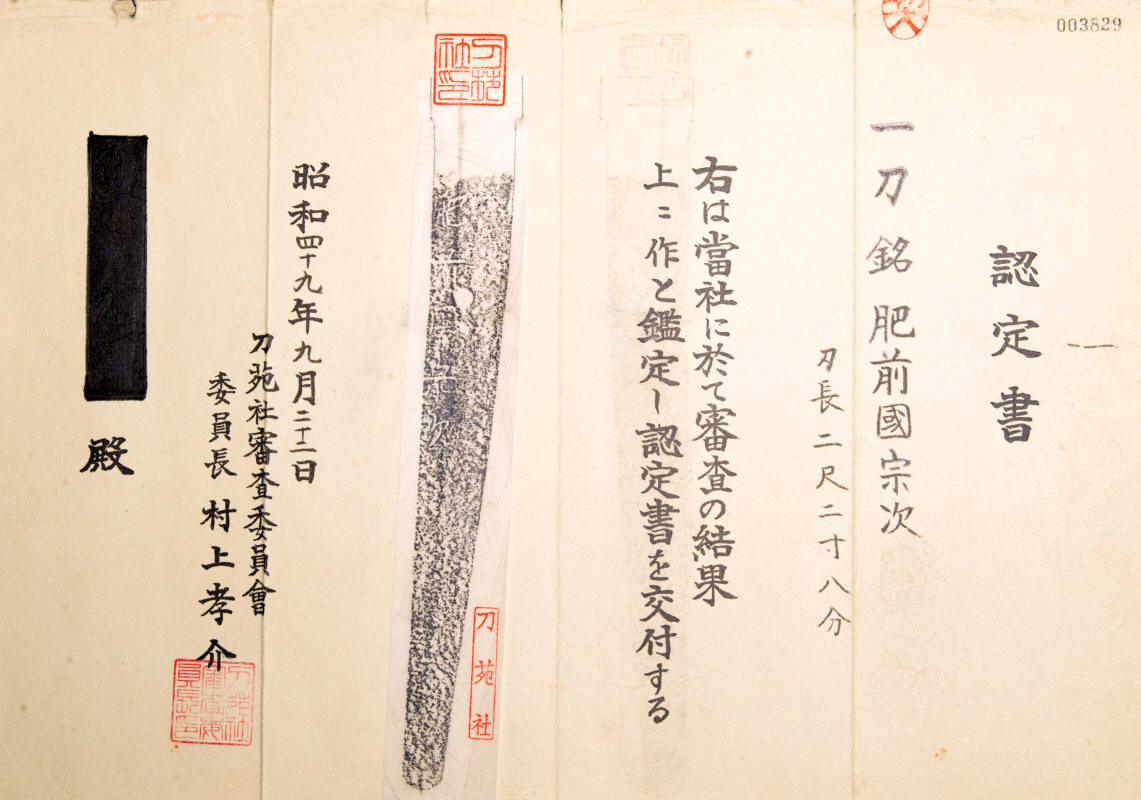 003829
認定書
一刀銘肥前國宗次
刃長二尺二寸八分
右は當社に於て審査の結果
上ニ作と鑑定し認定書を交付する
刀苑社印
刀苑社
昭和四十九年九月二十二日
刀苑社審査委員會
委員長村上孝介
殿